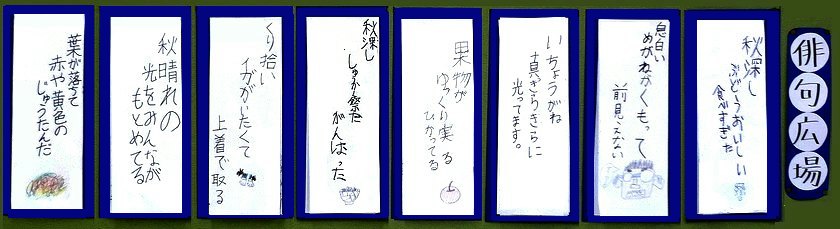 俳句広場
秋深し
ぶどうおいしい
食べすぎた
息白い
めがねがくもって
前見えない
いちょうがね
きらきらに
光ってます。
果物が
ゆっくり実る
ひかってる
秋深し
しゅか祭だ
がんばった
くり拾い
イガがいたくて
上着で取る
秋晴れの
光をみんなが
もとめてる
葉が落ちて
赤や黄色の
じゅうたんだ